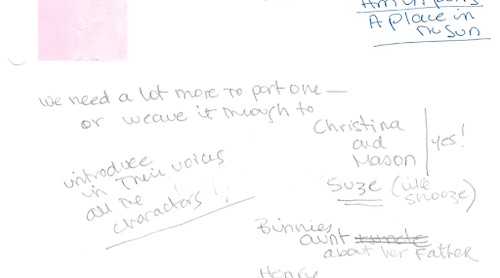 A Place in
the Sun
We need a lot more to part one —
or weave it through to
Christina
and
Mason
yes!
introduce
in their voices
all the
charactors!!
Suze (like
snooze)
Binnies
aunt
about her Father
Henry